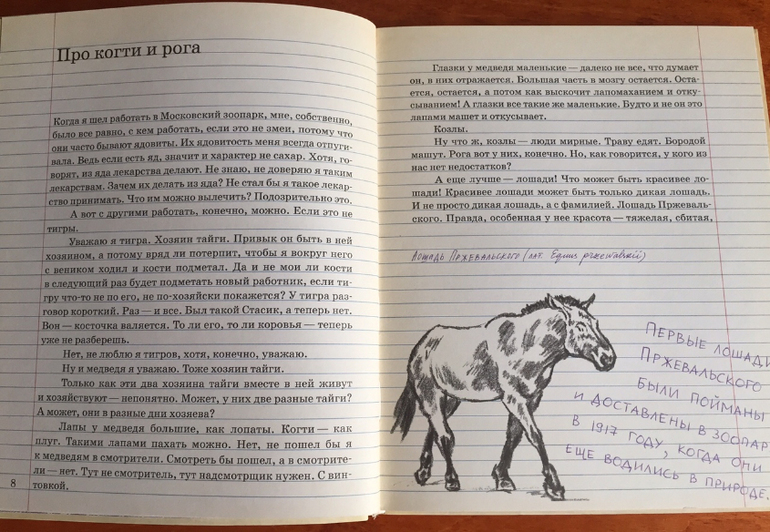 Про когти и рога
Когда я шел работать в Московский зоопарк, мне, собственно,
было все равно, с кем работать, если это не змеи, потому что
они часто бывают ядовиты. Их ядовитость меня всегда отпуги-
вала. Ведь если есть яд, значит и характер не сахар. Хотя, го-
ворят, из яда лекарства делают. Не знаю, не доверяю я таким
лекарствам. Зачем их делать из яда? Не стал бы я такое лекар-
ство принимать. Что им можно вылечить? Подозрительно это.
А вот с другими работать, конечно, можно. Если это не
тигры.
Уважаю я тигра. Хозяин тайги. Привык он быть в ней
хозяином, а потому вряд ли потерпит, чтобы я вокруг него
с веником ходил и кости подметал. Да и не мои ли кости
в следующий раз будет подметать новый работник, если тиг-
ру что-то не по его, не по-хозяйски покажется? У тигра раз-
говор короткий. Раз — и все. Был такой Стасик, а теперь нет.
Вон — косточка валяется. То ли его, то ли коровья — теперь
уже не разберешь.
Нет, не люблю я тигров, хотя, конечно, уважаю.
Ну и медведя я уважаю. Тоже хозяин тайги.
Только как эти два хозяина тайги вместе в ней живут
и хозяйствуют — непонятно. Может, у них две разные тайги?
А может, они в разные дни хозяева?
Лапы у медведя большие, как лопаты. Когти — как
плуг. Такими лапами пахать можно. Нет, не пошел бы я
к медведям в смотрители. Смотреть бы пошел, а в смотрите-
ли — нет. Тут не смотритель, тут надсмотрщик нужен. С вин-
товкой.
8
Глазки у медведя маленькие — далеко не все, что думает
он, в них отражается. Большая часть в мозгу остается. Оста-
ется, остается, а потом как выскочит лапомаханием и отку-
сыванием! А глазки все такие же маленькие. Будто и не он это
лапами машет и откусывает.
Козлы.
Ну что ж, козлы — люди мирные. Траву едят. Бородой
машут. Рога вот у них, конечно. Но, как говорится, у кого из
нас нет недостатков?
А еще лучше — лошади! Что может быть красивее ло-
шади! Красивее лошади может быть только дикая лошадь.
И не просто дикая лошадь, а с фамилией. Лошадь Пржеваль-
ского. Правда, особенная у нее красота — тяжелая, сбитая,
Лошадь Пржевальского (лат. Equus przewalskii)
Первые лошади
Пржевальского
были пойманы
и доставлены в зоопар
в 1917 году, когда они
еще водились в природе.